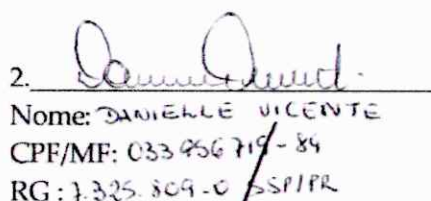 2.
Nome: DANIELLE VICENTE
CPF/MF: 033 956 719-84
RG: 7.325.809-0 SSP/PR